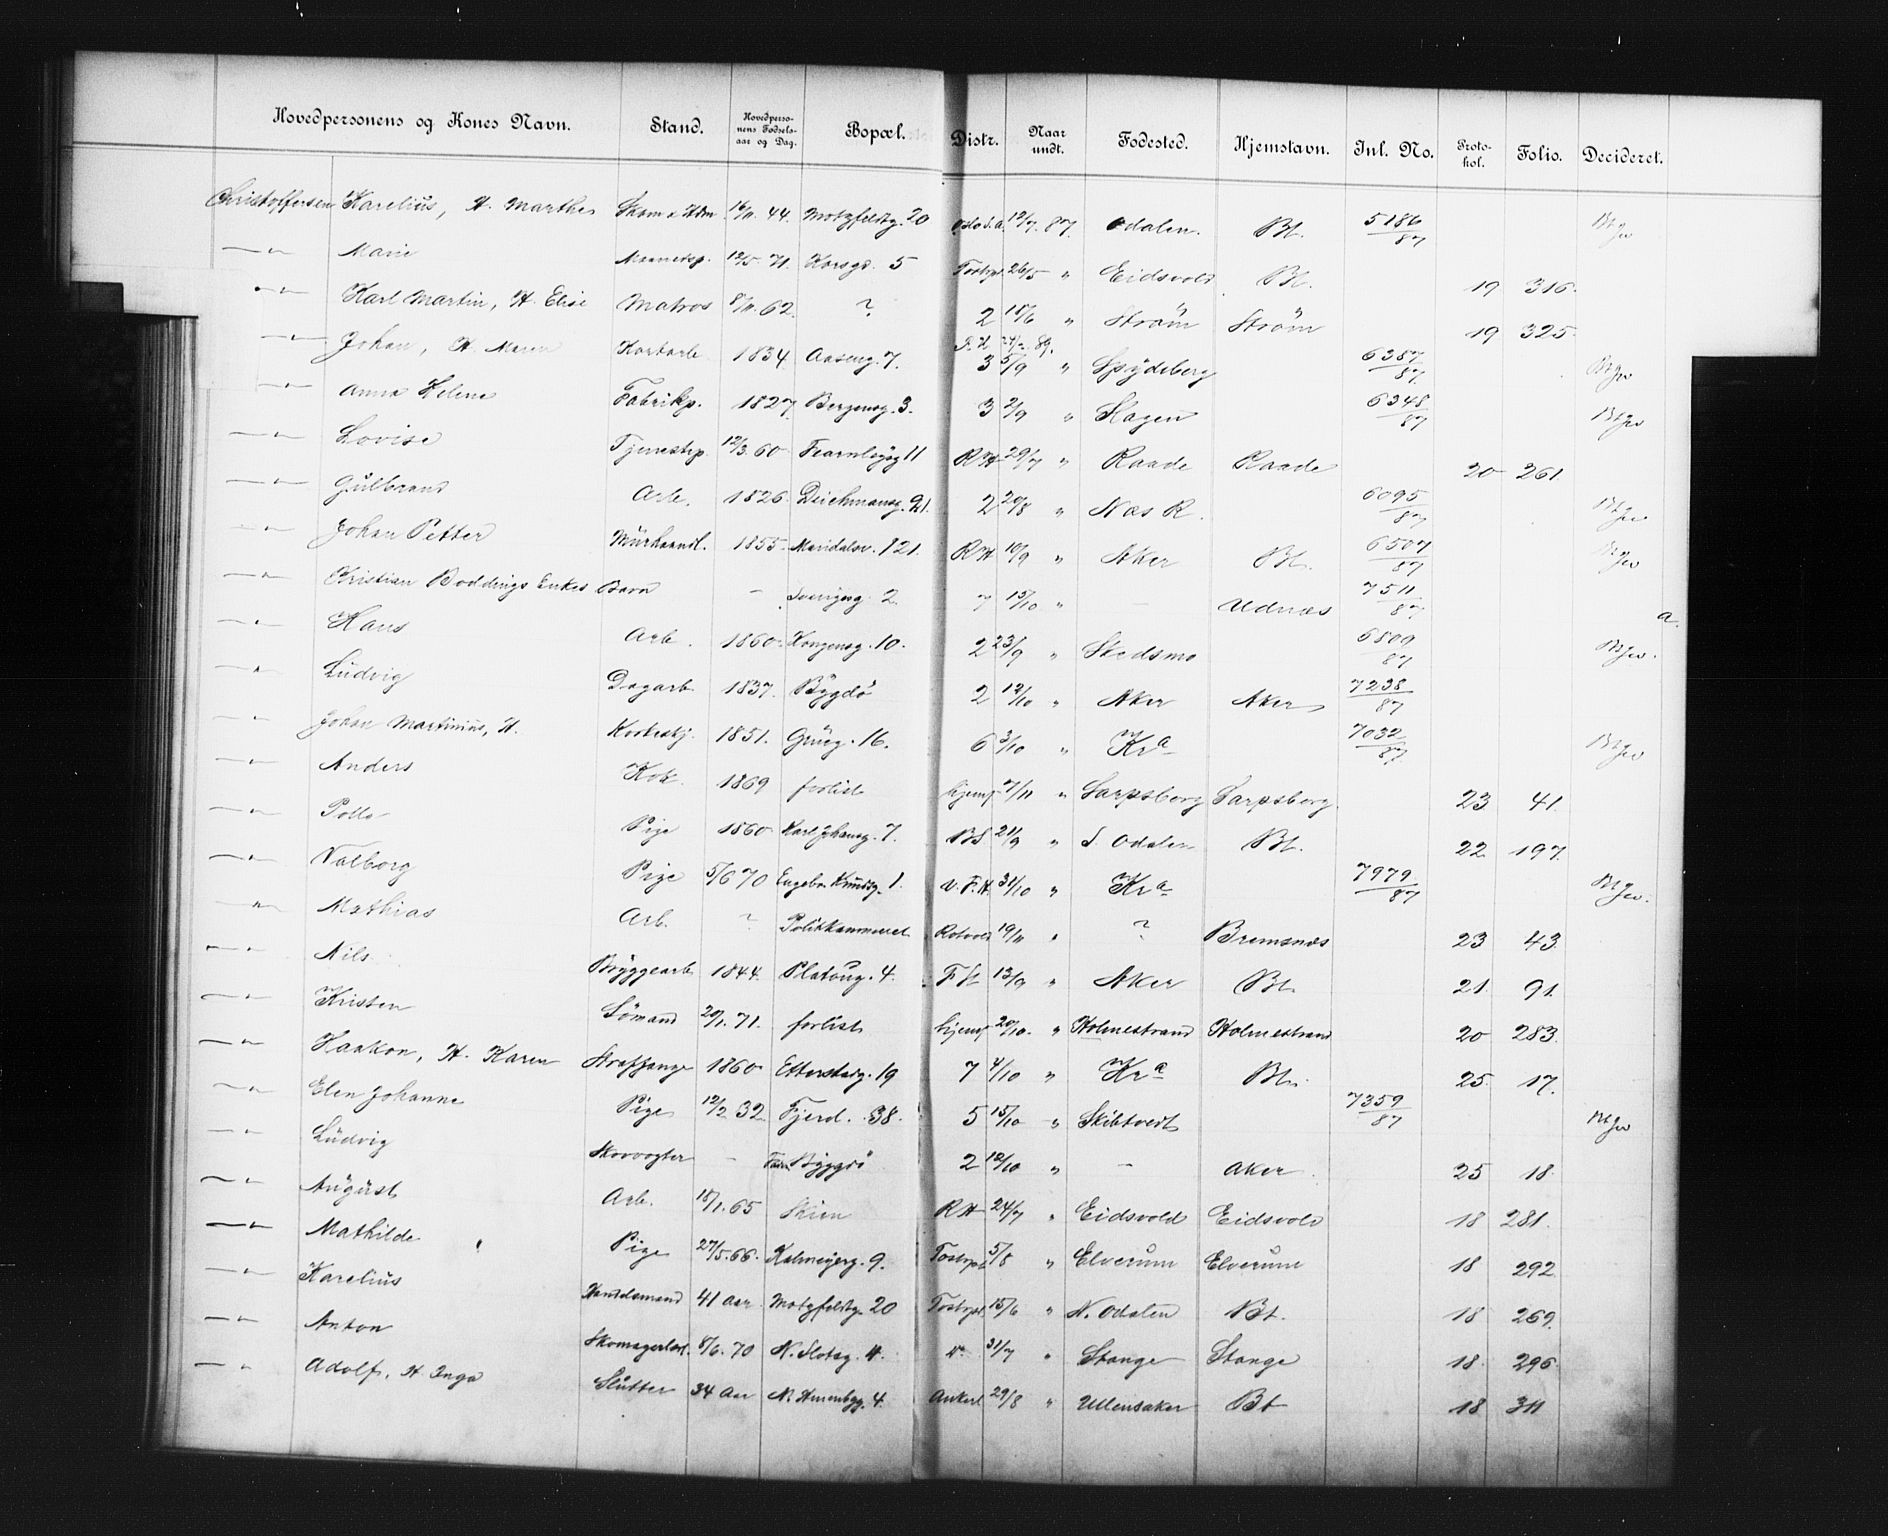 Hovedpersonens og Kones Navn. Stand. Hovedpersonens Fødselsaar og Dag. Bopæl. Distr. Naar undt. Fødested. Hjemstavn. Inl. No. Protokol. Folio. Decideret.
Christoffersen Karelius, H. Marthe 16/11 44. Motzfeldtg. 20 12/7 87. Odalen. Bt. 5186/87
—"— Marie 12/5 71. Korsgd. 5 26/5 " Eidsvold Bt. 19 316.
—"— Karl Martin, H. Elise Matros 8/11 62. ? 2 18/6 " Strøm Strøm 19 325.
—"— Johan, H. Maren 1834. Aaseng. 7. 3 5/9 " Spydeberg 6387/87
—"— Anna Helene Fabrikp. 1827. Bergensg. 3. 3 2/9 " Skagen 6348/87
—"— Lovise Tjenestep. 12/3 60 Fearnleysg 11 R H 29/7 " Raade Raade 20 261.
—"— Gulbrand Arb. 1826. Deichmansg. 21. 2 20/8 " Næs R. 6095/87
—"— Johan Petter Murhaandl. 1855. Maridalsv. 121. R H 10/9 " Aker Bt. 6507/87
—"— Christian Boddings Enkes Barn — Sverigesg. 2 7 15/10 " — Udnæs 7511/87 a.
—"— Hans Arb. 1860. Kongensg. 10. 2 23/9 " Skedsmo 6809/87
—"— Ludvig Dagarb. 1837. Bygdø 2 12/10 " Aker Aker 7238/87
—"— Johan Martinius, H. 1851. Grüng. 16. 6 3/10 " Kra 7032/87
—"— Anders Kok 1869 forlist hjemf 7/11 " Sarpsborg Sarpsborg. 23 41.
—"— Pige 1860 Karl Johansg. 7. 21/9 " S. Odalen Bt. 22 197.
—"— Valborg Pige 5/6 70 Engebr. Knudsg. 1. V. F. H. 31/10 " Kra 7979/87
—"— Mathias Arb. ? Politikammeret Rotvold 19/11 " ? Bremsnæs 23 43.
—"— Nils Bryggearb. 1844. Platoug. 4. F. St 13/9 " Aker Bt. 21. 91.
—"— Kristen Sømand 20/1. 71. forlist hjemf 20/10. " Holmestrand Holmestrand 20 283.
—"— Haakon, H. Karen Straffange 1860 Etterstadg. 19 7 4/10 " Kra Bt. 25. 17.
—"— Elen Johanne Pige 12/2 32 Fjerd. 38. 5 15/10 " Skibtvedt 7359/87
—"— Ludvig Skovvogter — Bygdø 2 12/10 " — Aker 25 18.
—"— August Arb. 18/1. 65 Skien R H 24/7 " Eidsvold Eidsvold 18 281.
—"— Mathilde Pige 27/5. 66. Kalmeyerg. 9. 5/8 " Elverum Elverum 18 292
—"— Karelius Handelsmand 41 Aar Motzfeldtg. 20 15/6 " N. Odalen Bt. 18 269.
—"— Anton Skomagerlærl. 8/6. 70 N. Slotsg. 4. 31/7 " Stange Stange 18 296
—"— Adolf, H. Inga Slutter 34 Aar 4. Ankerl 29/8 " Ullensaker Bt 18 311